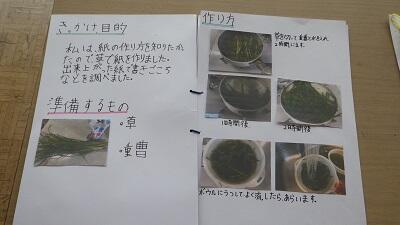 きっかけ目的
私は、紙の作り方を知りたかっ
たので草で紙を作りました。
出来上がった紙で書きごこち
などを調べました。
準備するもの
・草
・重曹
作り方
草を切って重曹と水を入れ
2時間にます。
1時間後
2時間後
ボウルにうつしてよく流したら、あらいます。